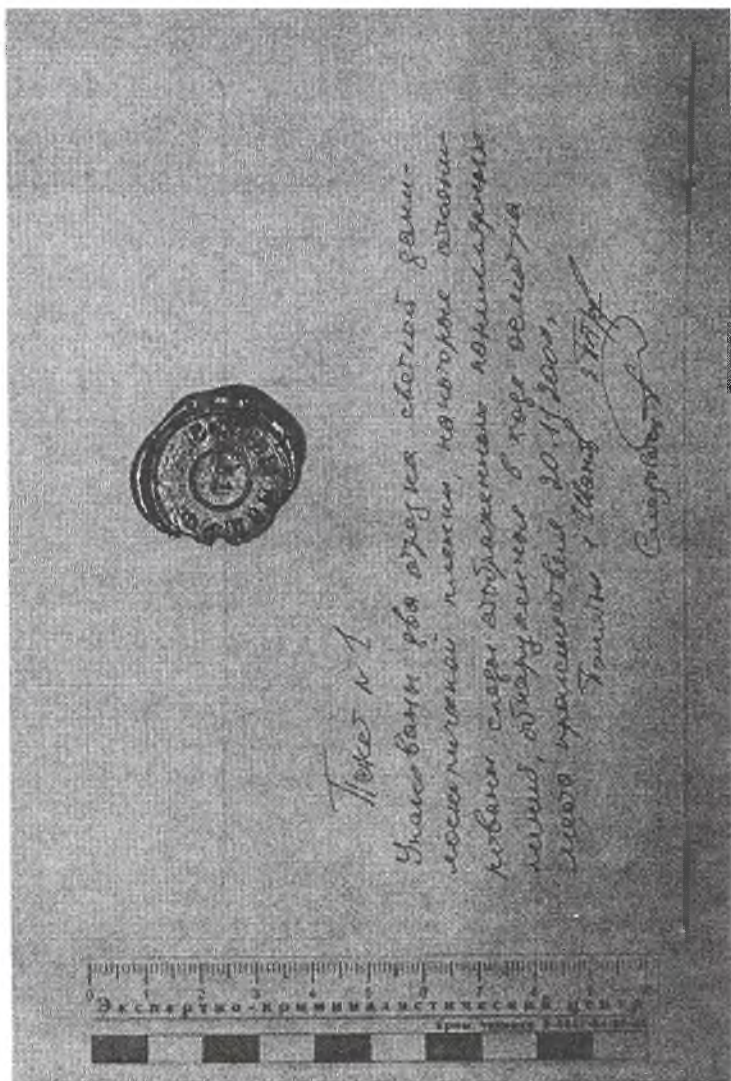 Пакет № 1
Упакованы два отрезка светлой дакти-
лоскопической пленки, на которые откопи-
рованы следы с отображением папиллярных
линий, обнаруженные в ходе осмотра
места происшествия 20.11.200
Понятые:
Следователь
0 1 2 3 4 5 6 7 8 9
Экспертно-криминалистический центр